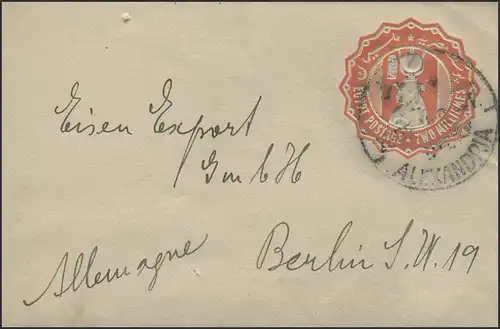 POSTAGE • TWO MILLIEMES
ALEXANDRIA
Eisen Export
GmbH
Allemagne
Berlin S.W. 19